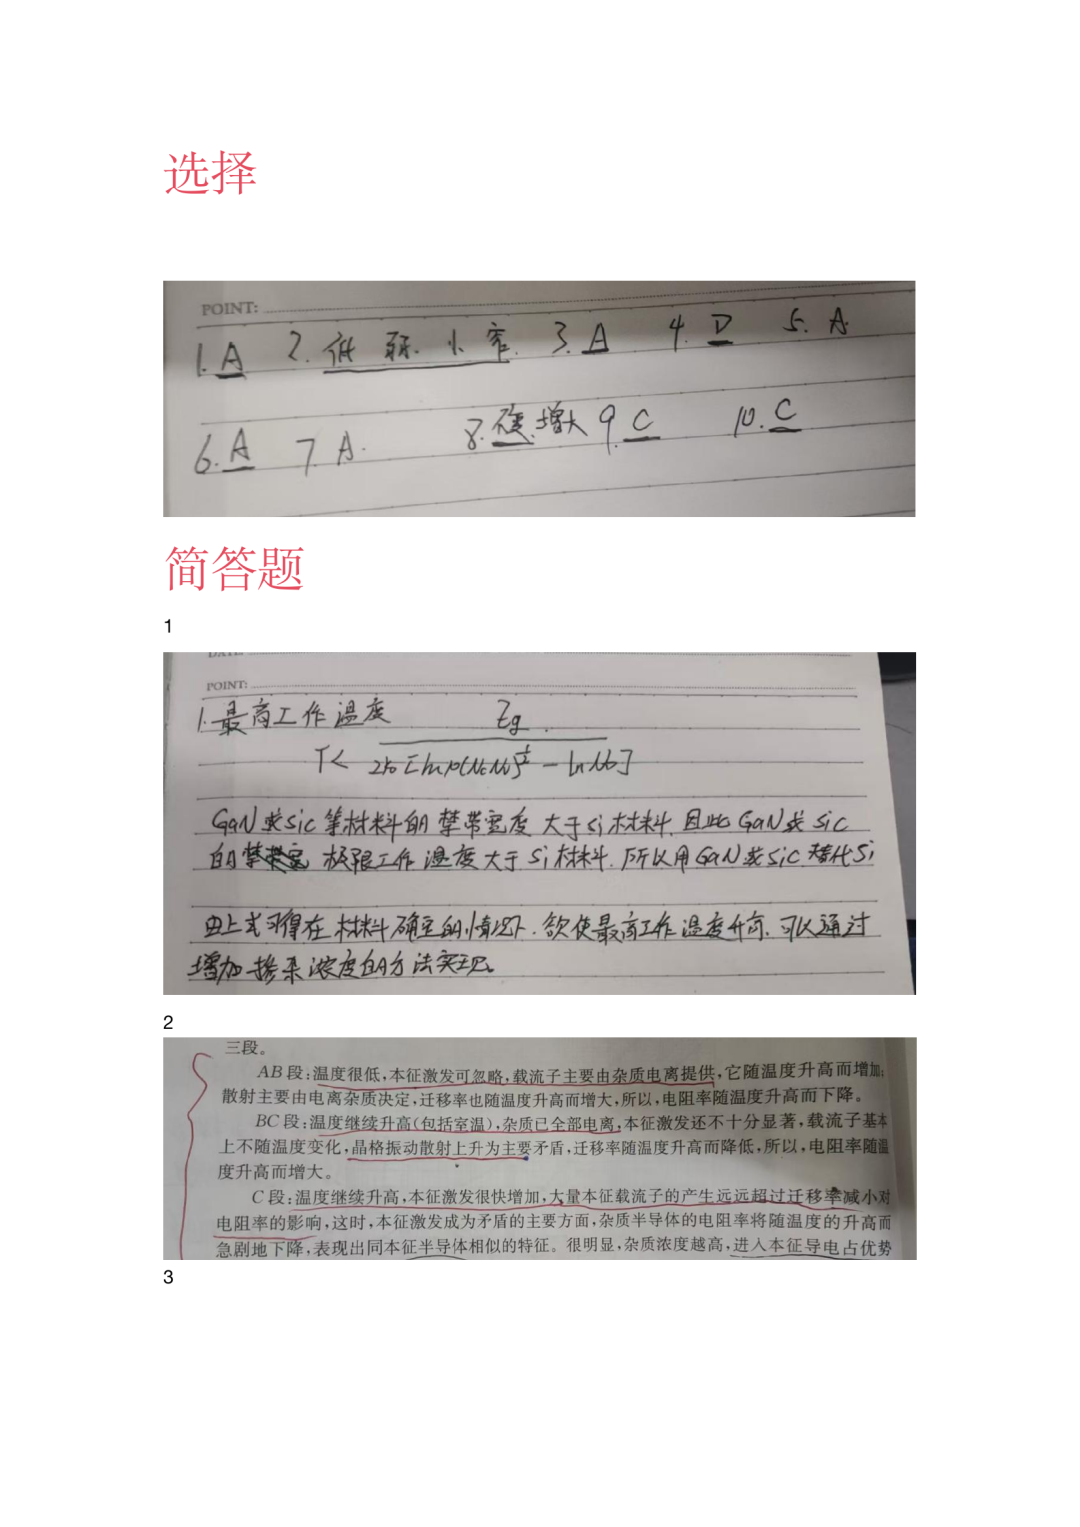 选择
POINT:
1. A 2. 低 弱 小 窄. 3. A 4. D 5. A
6. A 7 A. 8. 硬 增大 9. C 10. C
简答题
1
POINT:
1. 最高工作温度 Eg
T<
GaN或SiC等材料的禁带宽度大于Si材料.因此GaN或SiC
的禁带宽 极限工作温度大于Si材料.所以用GaN或SiC替代Si
由上式可得在材料确定的情况下.欲使最高工作温度升高.可以通过
增加掺杂浓度的方法实现
2
三段。
AB段:温度很低,本征激发可忽略,载流子主要由杂质电离提供,它随温度升高而增加;
散射主要由电离杂质决定,迁移率也随温度升高而增大,所以,电阻率随温度升高而下降。
BC段:温度继续升高(包括室温),杂质已全部电离,本征激发还不十分显著,载流子基本
上不随温度变化,晶格振动散射上升为主要矛盾,迁移率随温度升高而降低,所以,电阻率随温
度升高而增大。
C段:温度继续升高,本征激发很快增加,大量本征载流子的产生远远超过迁移率减小对
电阻率的影响,这时,本征激发成为矛盾的主要方面,杂质半导体的电阻率将随温度的升高而
急剧地下降,表现出同本征半导体相似的特征。很明显,杂质浓度越高,进入本征导电占优势
3